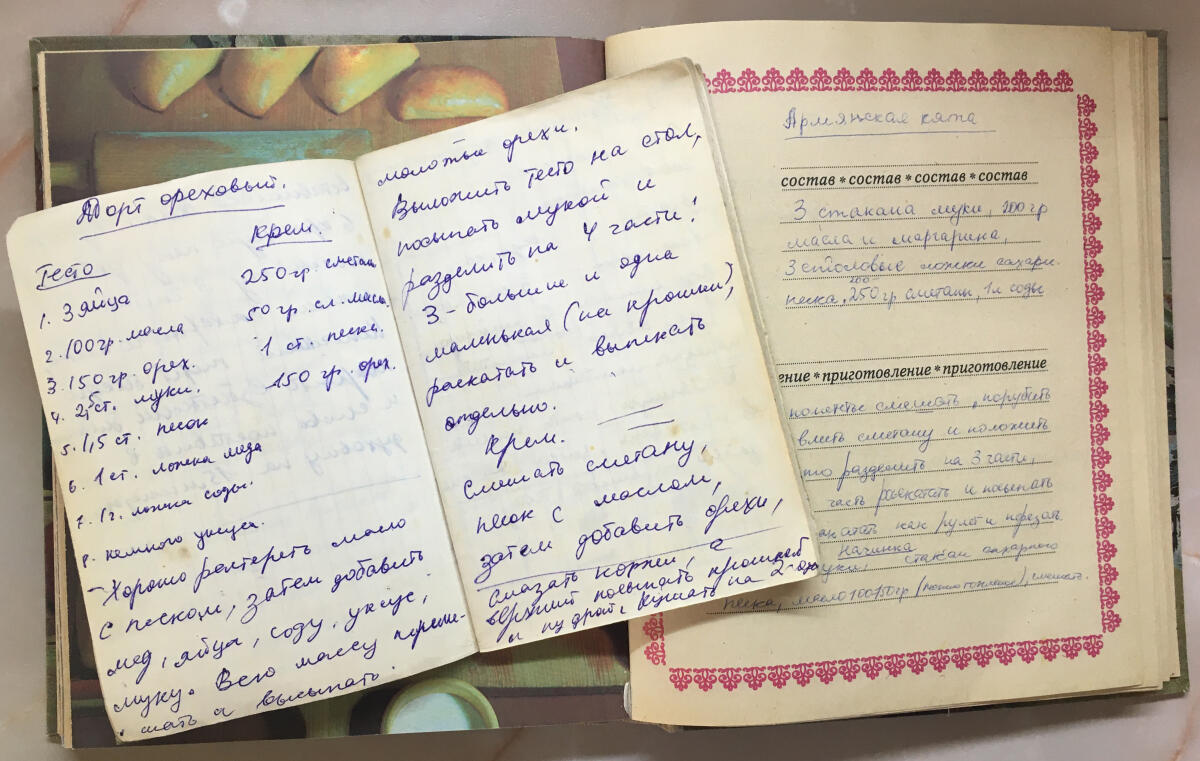 Торт ореховый.
Тесто
1. 3 яйца
2. 100 гр. масла
3. 150 гр. орех.
4. 2,5 ст. муки.
5. 1,5 ст. песок
6. 1 ст. ложка меда
7. 1 г. ложка соды.
8. немного уксуса.
Крем.
250 гр. сметаны
50 гр. сл. масла.
1 ст. песка.
150 гр. орех.
- Хорошо растереть масло
с песком, затем добавить
мед, яйца, соду, уксус,
муку. Всю массу переме-
шать и высыпать
молотые орехи.
Выложить тесто на стол,
посыпать мукой и
разделить на 4 части:
3 - большие и одна
маленькая (на крошки)
раскатать и выпекать
отдельно.
Крем.
Смешать сметану,
песок с маслом,
затем добавить орехи,
смазать коржи, а
верхний посыпать крошкой
Кушать на 2-ой
Армянская ката
состав * состав * состав * состав
3 стакана муки, 200 гр
масла и маргарина,
3 столовые ложки сахарн.
200
песка, 250 гр сметаны, 1 л соды
ение * приготовление * приготовление
смешать, порубить
влить сметану и положить
разделить на 3 части,
часть раскатать и посыпать
катать как рулет и порезать
Начинка
муки, стакан сахарного
песка, масло 100-150 гр смешать.